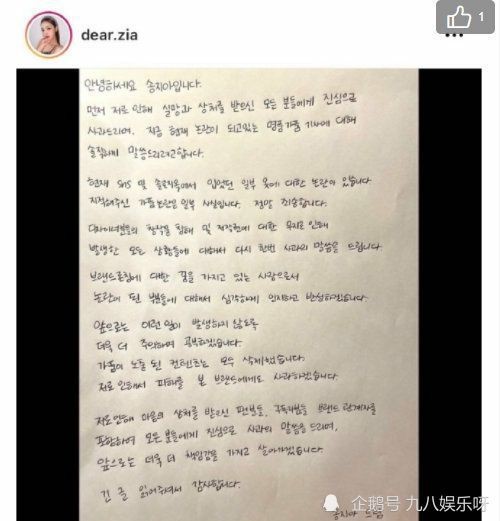 1
dear.zia
안녕하세요 송지아입니다.
먼저 저로 인해 실망과 상처를 받으신 모든 분들에게 진심으로
사과드리며, 지금 현재 논란이 되고있는 명품가품 기사에 대해
솔직하게 말씀드리려고합니다.
현재 SNS 및 솔로지옥에서 입었던 일부 옷에 대한 논란이 있습니다
지적해주신 가품논란은 일부 사실입니다. 정말 죄송합니다.
디자이너분들의 창작물 침해 및 저작권에 대한 무지로 인해
발생한 모든 상황들에 대해서 다시 한번 사과의 말씀을 드립니다.
브랜드론칭에 대한 꿈을 가지고 있는 사람으로서
논란이 된 부분들에 대해서 심각하게 인지하고 반성하겠습니다
앞으로는 이런 일이 발생하지 않도록
더욱 더 주의하며 공부하겠습니다.
가품이 노출 된 컨텐츠는 모두 삭제했습니다.
저로 인해서 피해를 본 브랜드에게도 사과하겠습니다.
저로인해 마음의 상처를 받으신 팬분들, 구독자분들 브랜드 관계자를
포함하여 모든 분들에게 진심으로 사과의 말씀을 드리며,
앞으로는 더욱 더 책임감을 가지고 살아가겠습니다.
긴 글 읽어주셔서 감사합니다.
송지아 드림
企鹅号 九八娱乐呀